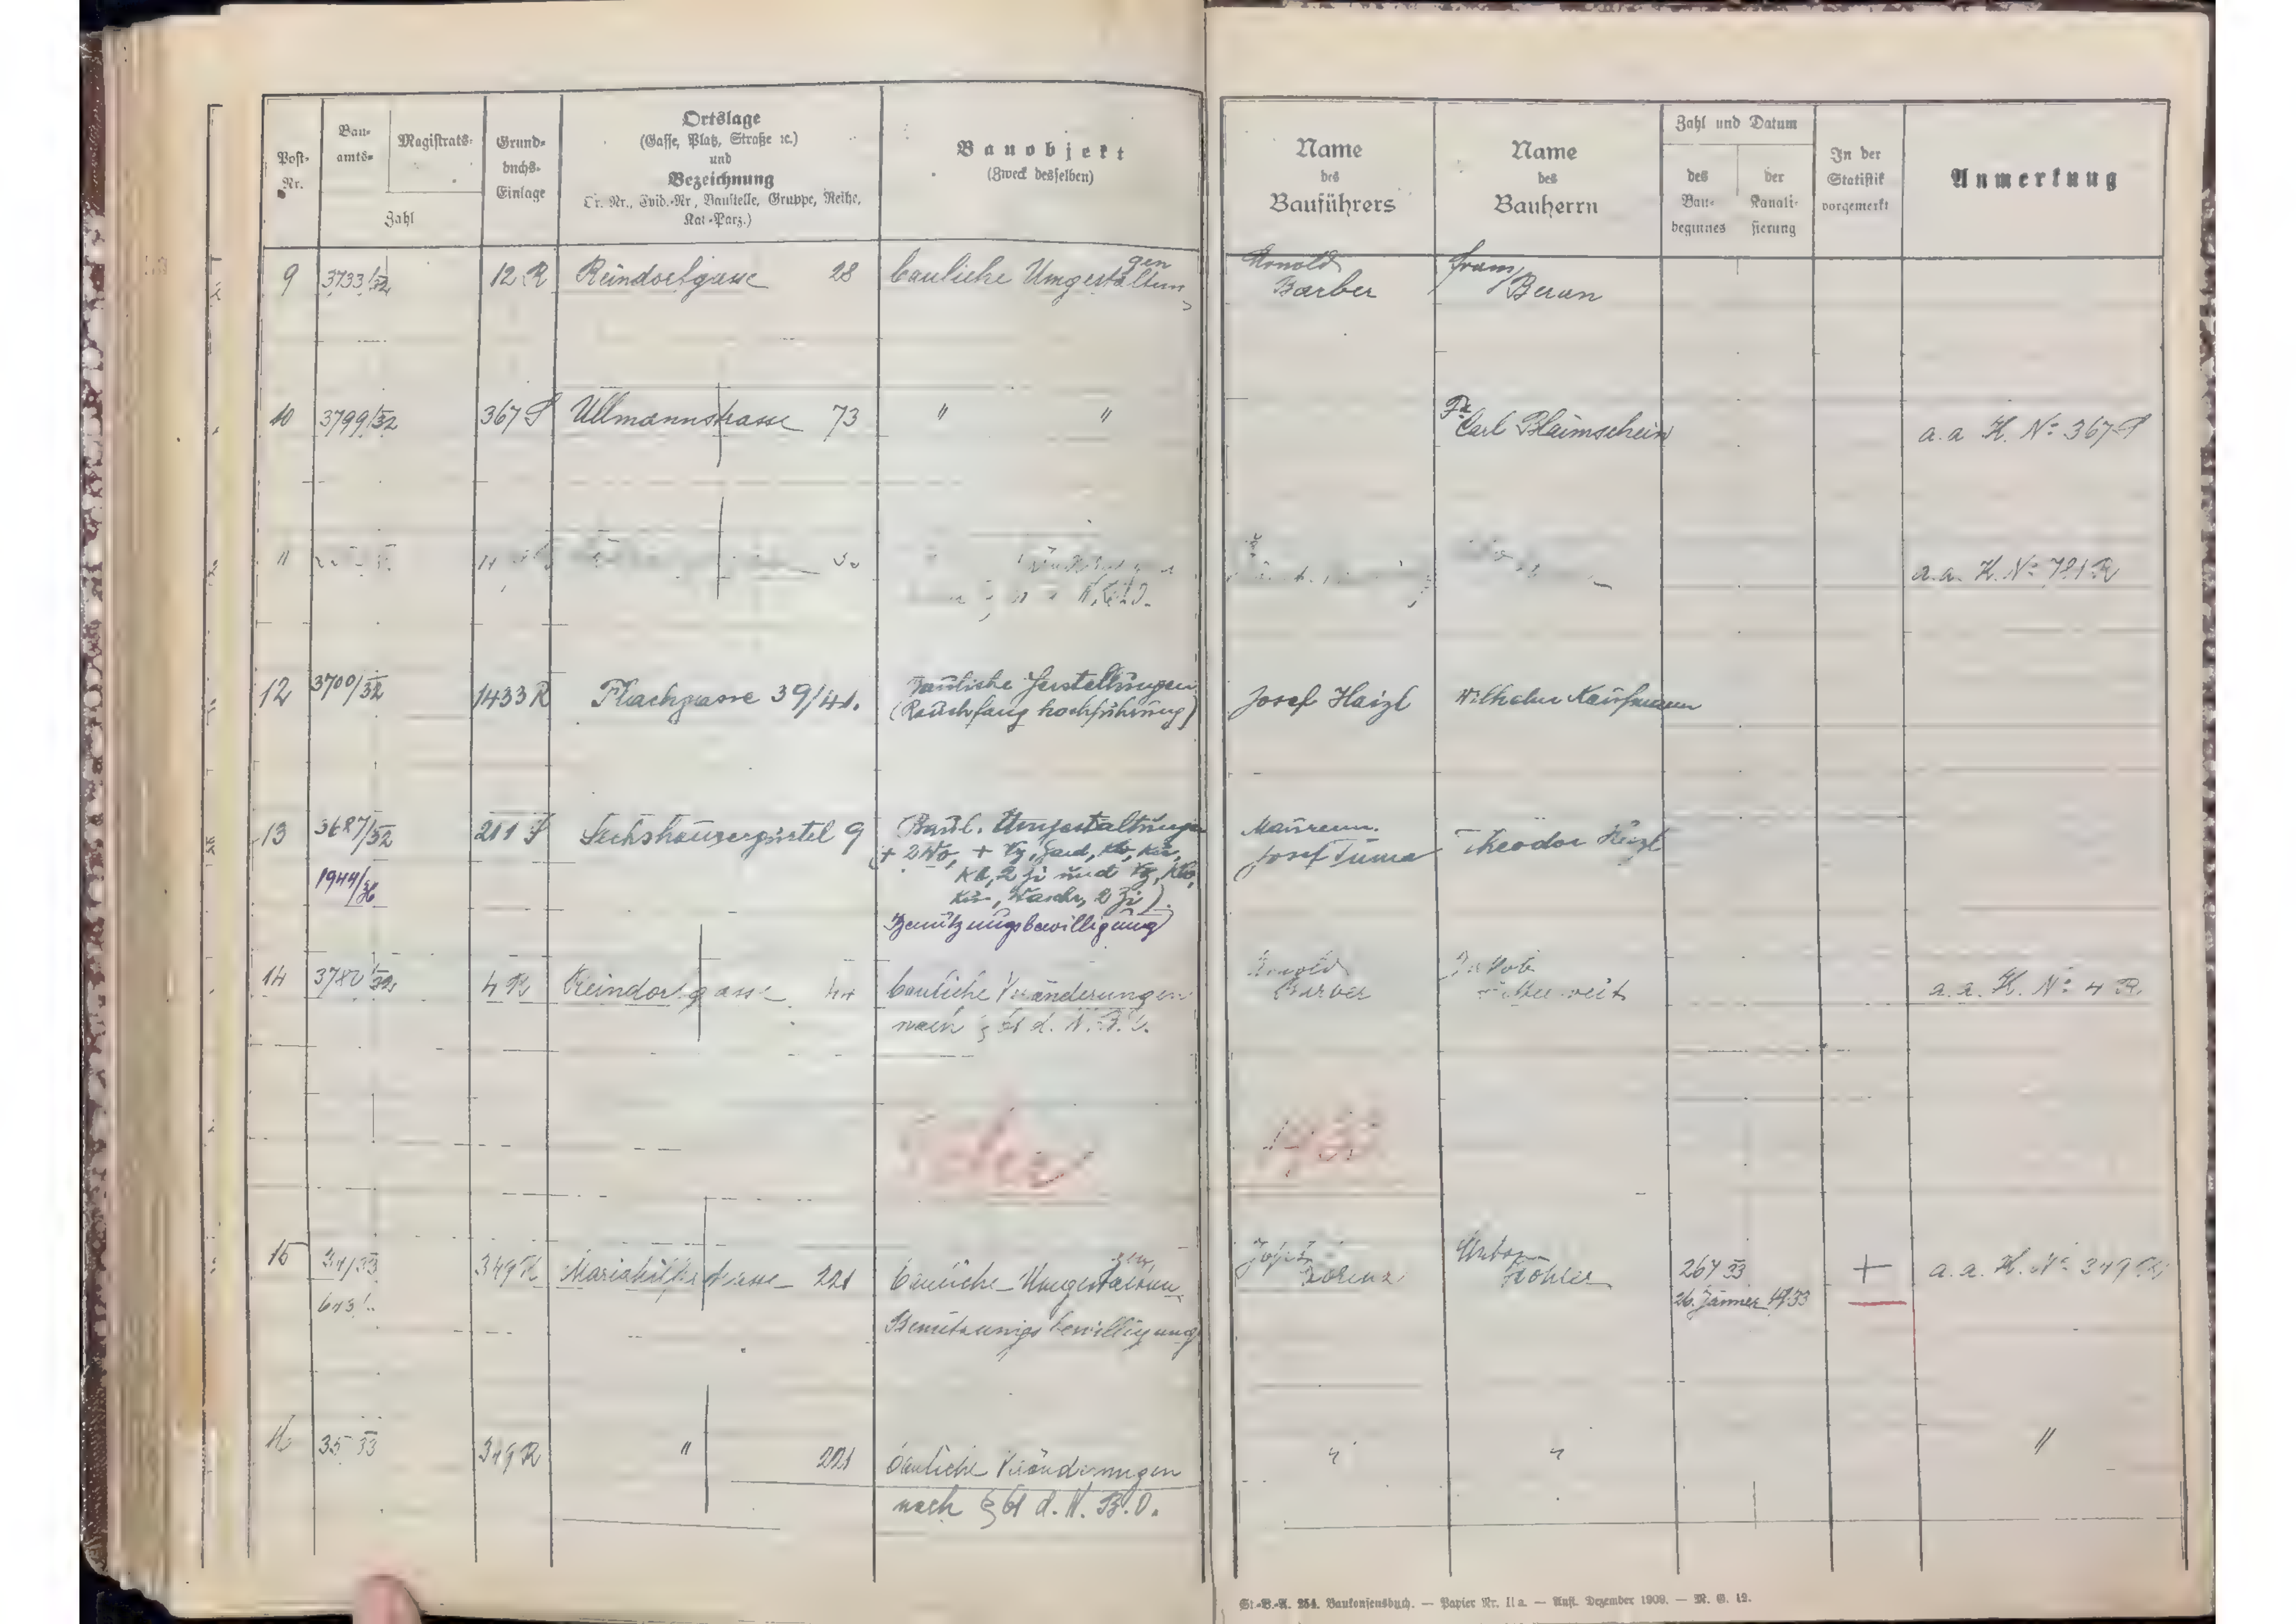 Post-
Nr.
Bau-
amts-
Magistrats-
Zahl
Grund-
buchs-
Einlage
Ortslage
(Gasse, Platz, Straße ꝛc.)
und
Bezeichnung
Or. Nr., Evid.-Nr., Baustelle, Gruppe, Reihe,
Kat.-Parz.)
Bauobjekt
(Zweck desselben)
Name
des
Bauführers
Name
des
Bauherrn
Zahl und Datum
des
Bau-
beginnes
der
Kanali-
sierung
In der
Statistik
vorgemerkt
Anmerkung
9 3733/32 12 R Reindorfgasse 28 bauliche Umgestaltun
gen
Arnold
Barber
Franz
Beran
10 3799/32 367 S Ullmannstrasse 73 " "
Fa
Carl Blaimschein
a.a K. No 367 S
11
a.a. K. No 721 R
12 3700/32 1433 R Flachgasse 39/41. bauliche Herstellungen
(Rauchfang hochführung)
Josef Haizl Wilhelm Kaufmann
13 3687/32 211 S Sechshausergürtel 9 (Baul. Umgestaltungen
+ 2 Wo, + Vz, Gard, Klo, Kü,
Kb, 2 Zi und Vz, Klo,
Kü, Waschr, 2 Zi).
1944/36
Benützungsbewilligung
Maurerm.
Josef Tuma
Theodor
14 3780/32 4 R Reindorfgasse 44 bauliche Veränderungen
nach § 61 d. N. B. O.
Arnold
Barber
Jakob
a.a. K. No 4 R
1933
15 34/33 349 R Mariahilferstrasse 221 bauliche Umgestaltun
gen,
643/
Benützungsbewilligung
Josef
Lorenz
Anton
Köhler
267/33
26. Jänner 1933
+
a.a. K. No 349 R
16 35/33 349 R " 221 bauliche Veränderungen
nach § 61 d. N. B. O.
" " "
St.-B.-A. 254. Baukonsensbuch. — Papier Nr. IIa. — Aufl. Dezember 1909. — M. G. 12.